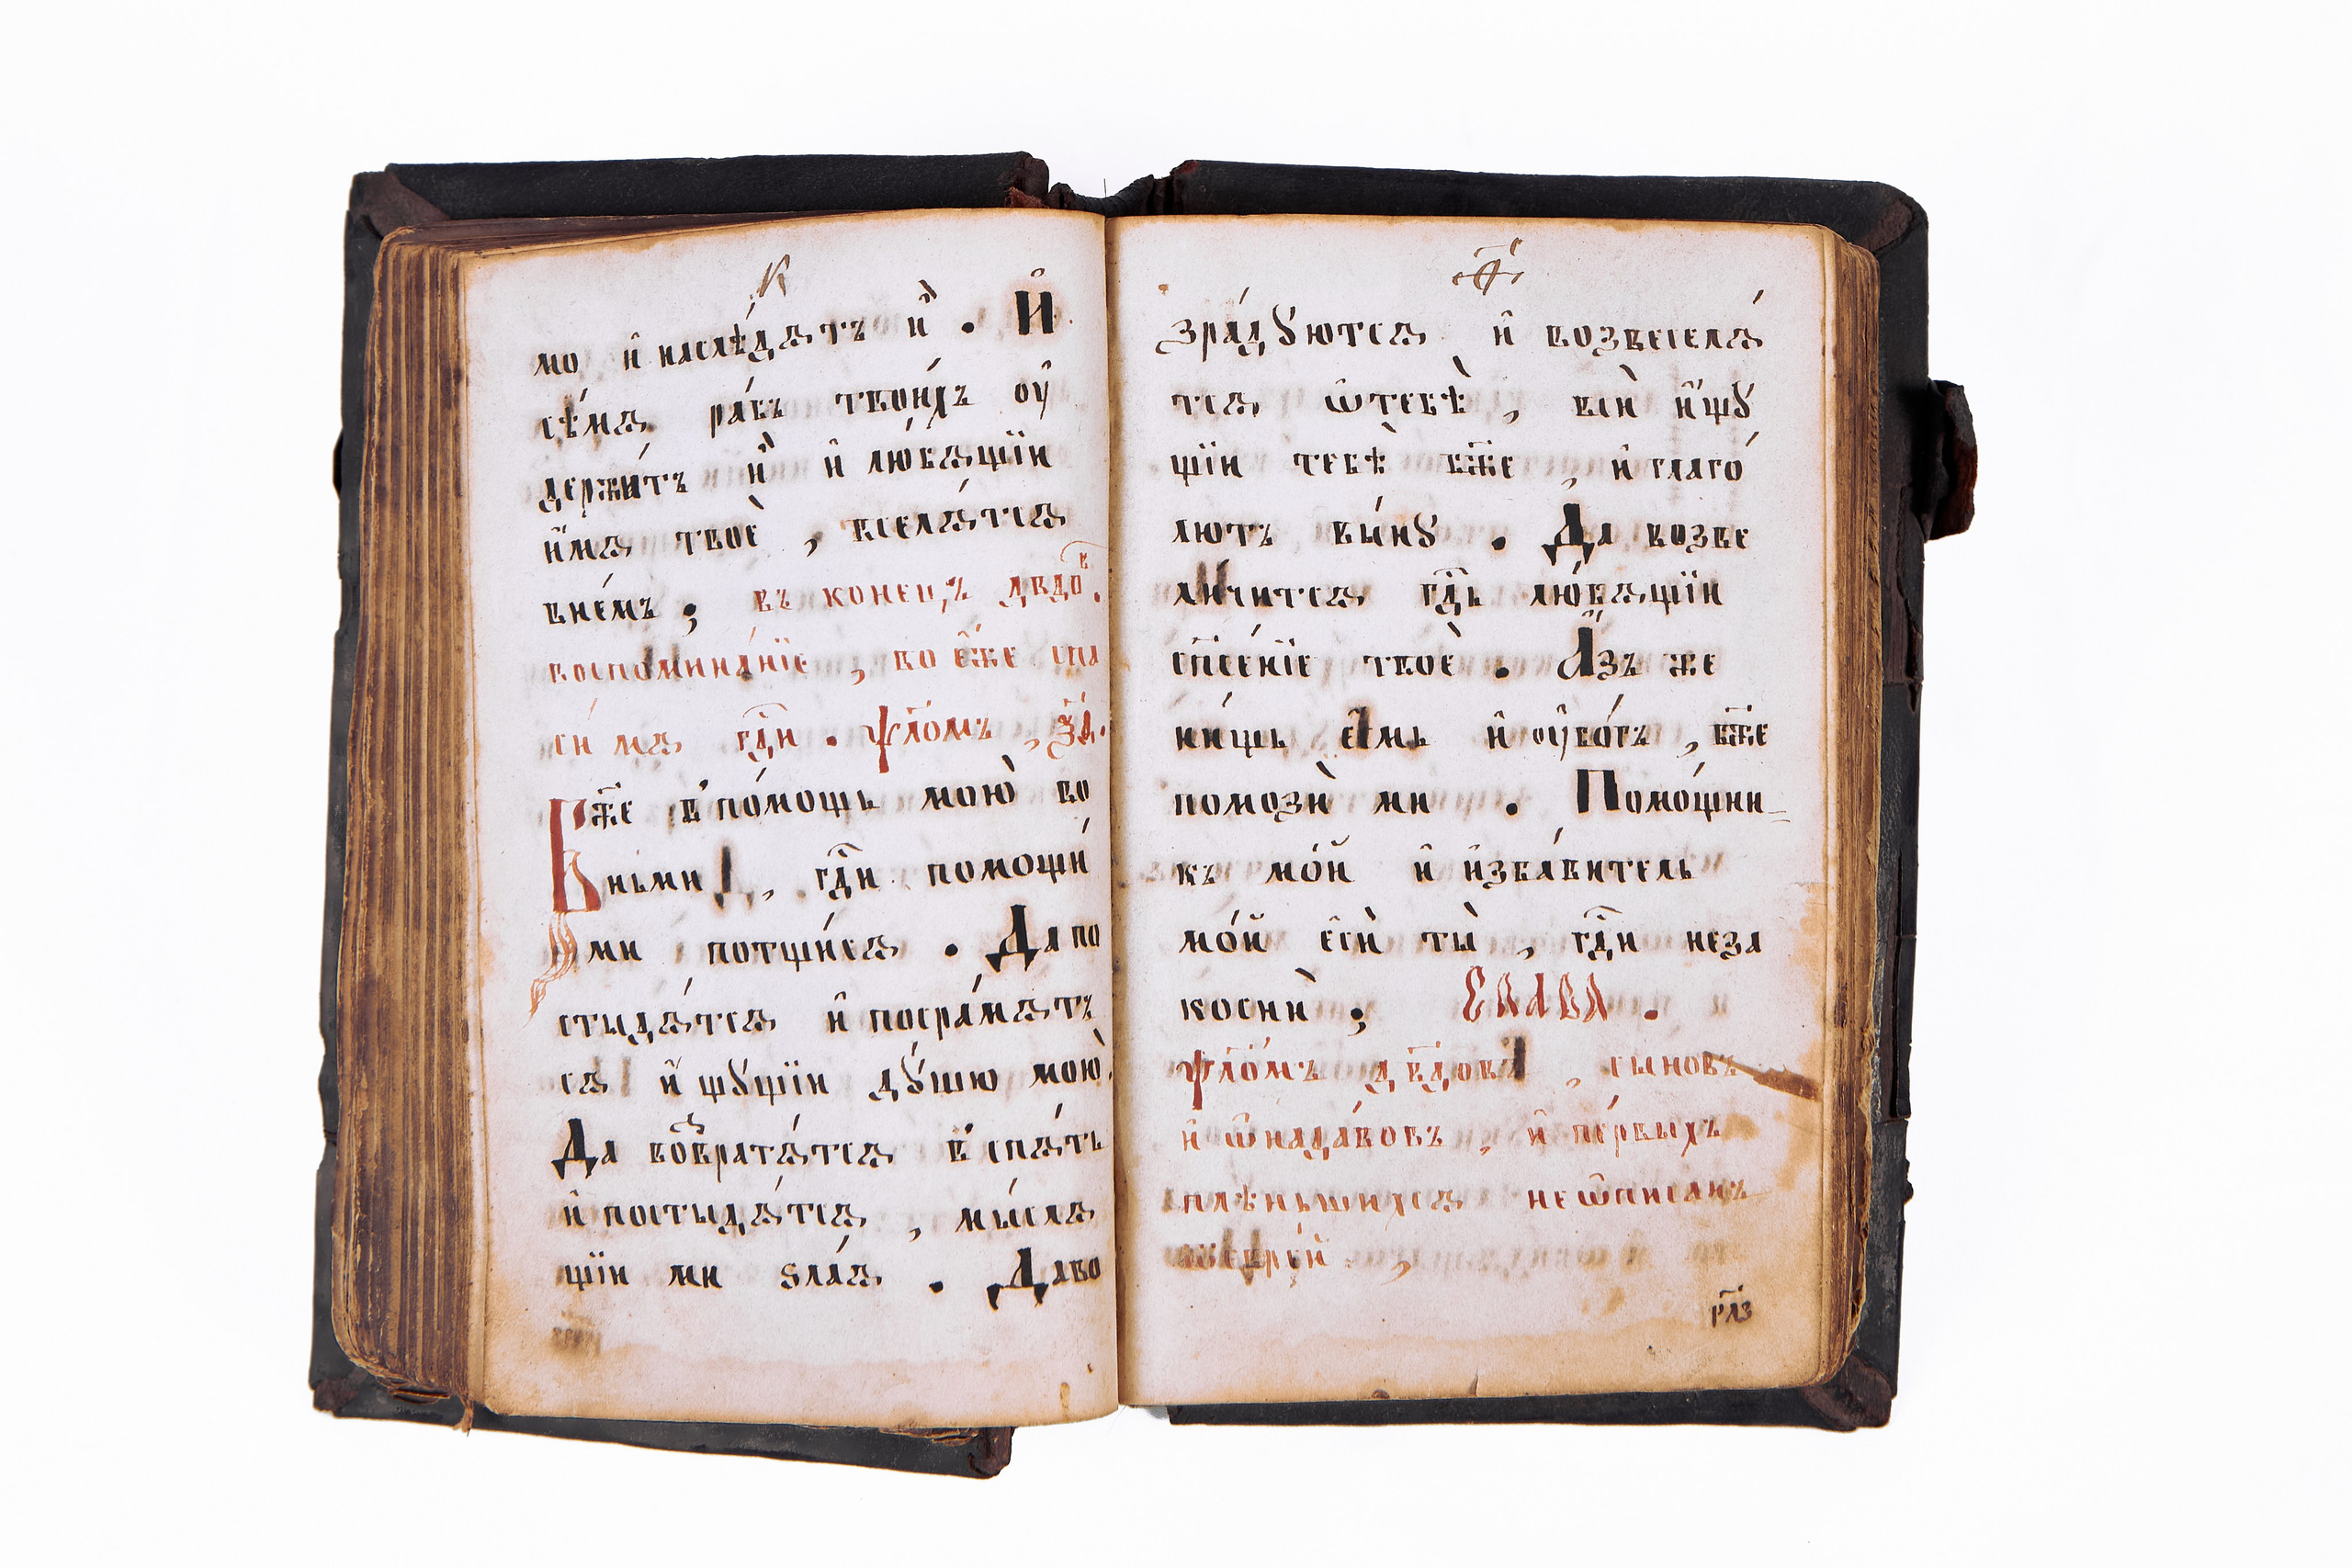 К
мо и҆ наслѣ́дѧтъ и҆̀ . И҆
сѣ́мѧ ра́бъ твои́хъ ᲂу҆
держи́тъ и҆̀ и҆ лю́бѧщїи
и҆́мѧ твоѐ , вселѧ́тсѧ
вне́мъ ; въ конецъ дв҃дов .
воспомина́нїе , во є҆́же спа
си́ мѧ гд҃и . ѱло́мъ , ѯ҃д .
Бж҃е в̾ по́мощь мою̀ во
ньми , гд҃и помощи́
ми потщи́сѧ . Да по
стыдѧ́тсѧ и҆ посра́мѧтъ
сѧ и҆́щꙋщїи дꙋ́шю мою̀ .
Да возвратѧ́тсѧ в̾спѧ́ть
и҆ постыдѧ́тсѧ , мы́слѧ
щїи ми ѕла́ѧ . Даво
зра́дꙋютсѧ и҆ возвеселѧ́
тсѧ ѡ҆тебѣ̀ , всѝ и҆́щꙋ
щїи тебѣ̀ бж҃е , и҆ глаго́
лютъ вы́нꙋ . Да возве
ли́читсѧ гд҃ь лю́бѧщїи
сп҃се́нїе твоѐ . А҆́зъ же
ни́щь є҆́смь и҆ ᲂу҆бо́гъ , бж҃е
помозѝ ми . Помо́щни-
къ мо́й и҆ и҆зба́витель
мо́й є҆сѝ ты̀ , гд҃и неза
коснѝ ; Слава .
ѱло́мъ дв҃довъ , сыновъ
и҆ ѡ҆нада́вовъ , и҆ пе́рвыхъ
плѣньшихсѧ неѡ҆писанъ
рл҃з